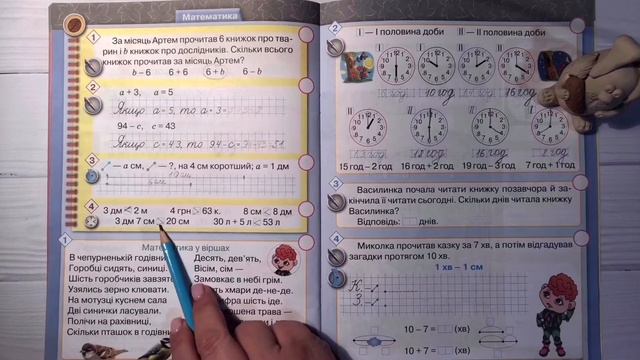 Математика
1
За місяць Артем прочитав 6 книжок про тва-
рин і b книжок про дослідників. Скільки всього
книжок прочитав за місяць Артем?
b – 6 6 + 6 6 + b 6 – b
2
а + 3, а = 5
Якщо а = 5, то а + 3 =
94 – с, с = 43
Якщо с = 43, то 94 – с =
3
— а см, — ?, на 4 см коротший; а = 1 дм
4
3 дм < 2 м 4 грн > 63 к. 8 см < 8 дм
3 дм 7 см > 20 см 30 л + 5 л < 53 л
1
Математика у віршах
В чепурненькій годівниці
Горобці сидять, синиці.
Шість горобчиків завзято
Узялись зерно клювати.
На мотузці куснем сала
Дві синички ласували.
Полічи на рахівниці,
Скільки пташок в годівниці
Десять, дев'ять,
Вісім, сім —
Замовкає в небі грім.
хмари де-не-де.
шість іде.
трава —
2
I — I половина доби II — II половина доби
10 год
15 год – 2 год 16 год + 2 год 19 год – 3 год 7 год + 1 год
3
Василинка почала читати книжку позавчора й за-
кінчила її читати сьогодні. Скільки днів читала книжку
Василинка?
Відповідь: днів.
4
Миколка прочитав казку за 7 хв, а потім відгадував
загадки протягом 10 хв.
1 хв – 1 см
К.
З.
10 – 7 = (хв)
10 + 7 = (хв)